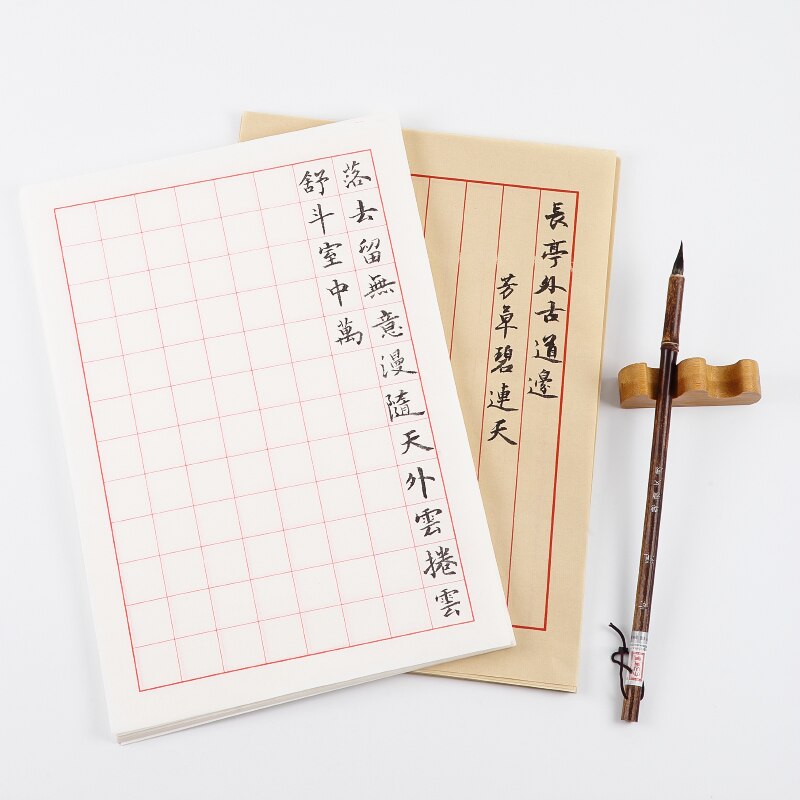 落去留無意漫隨天外雲捲雲
舒斗室中萬
長亭外古道邊
芳草碧連天